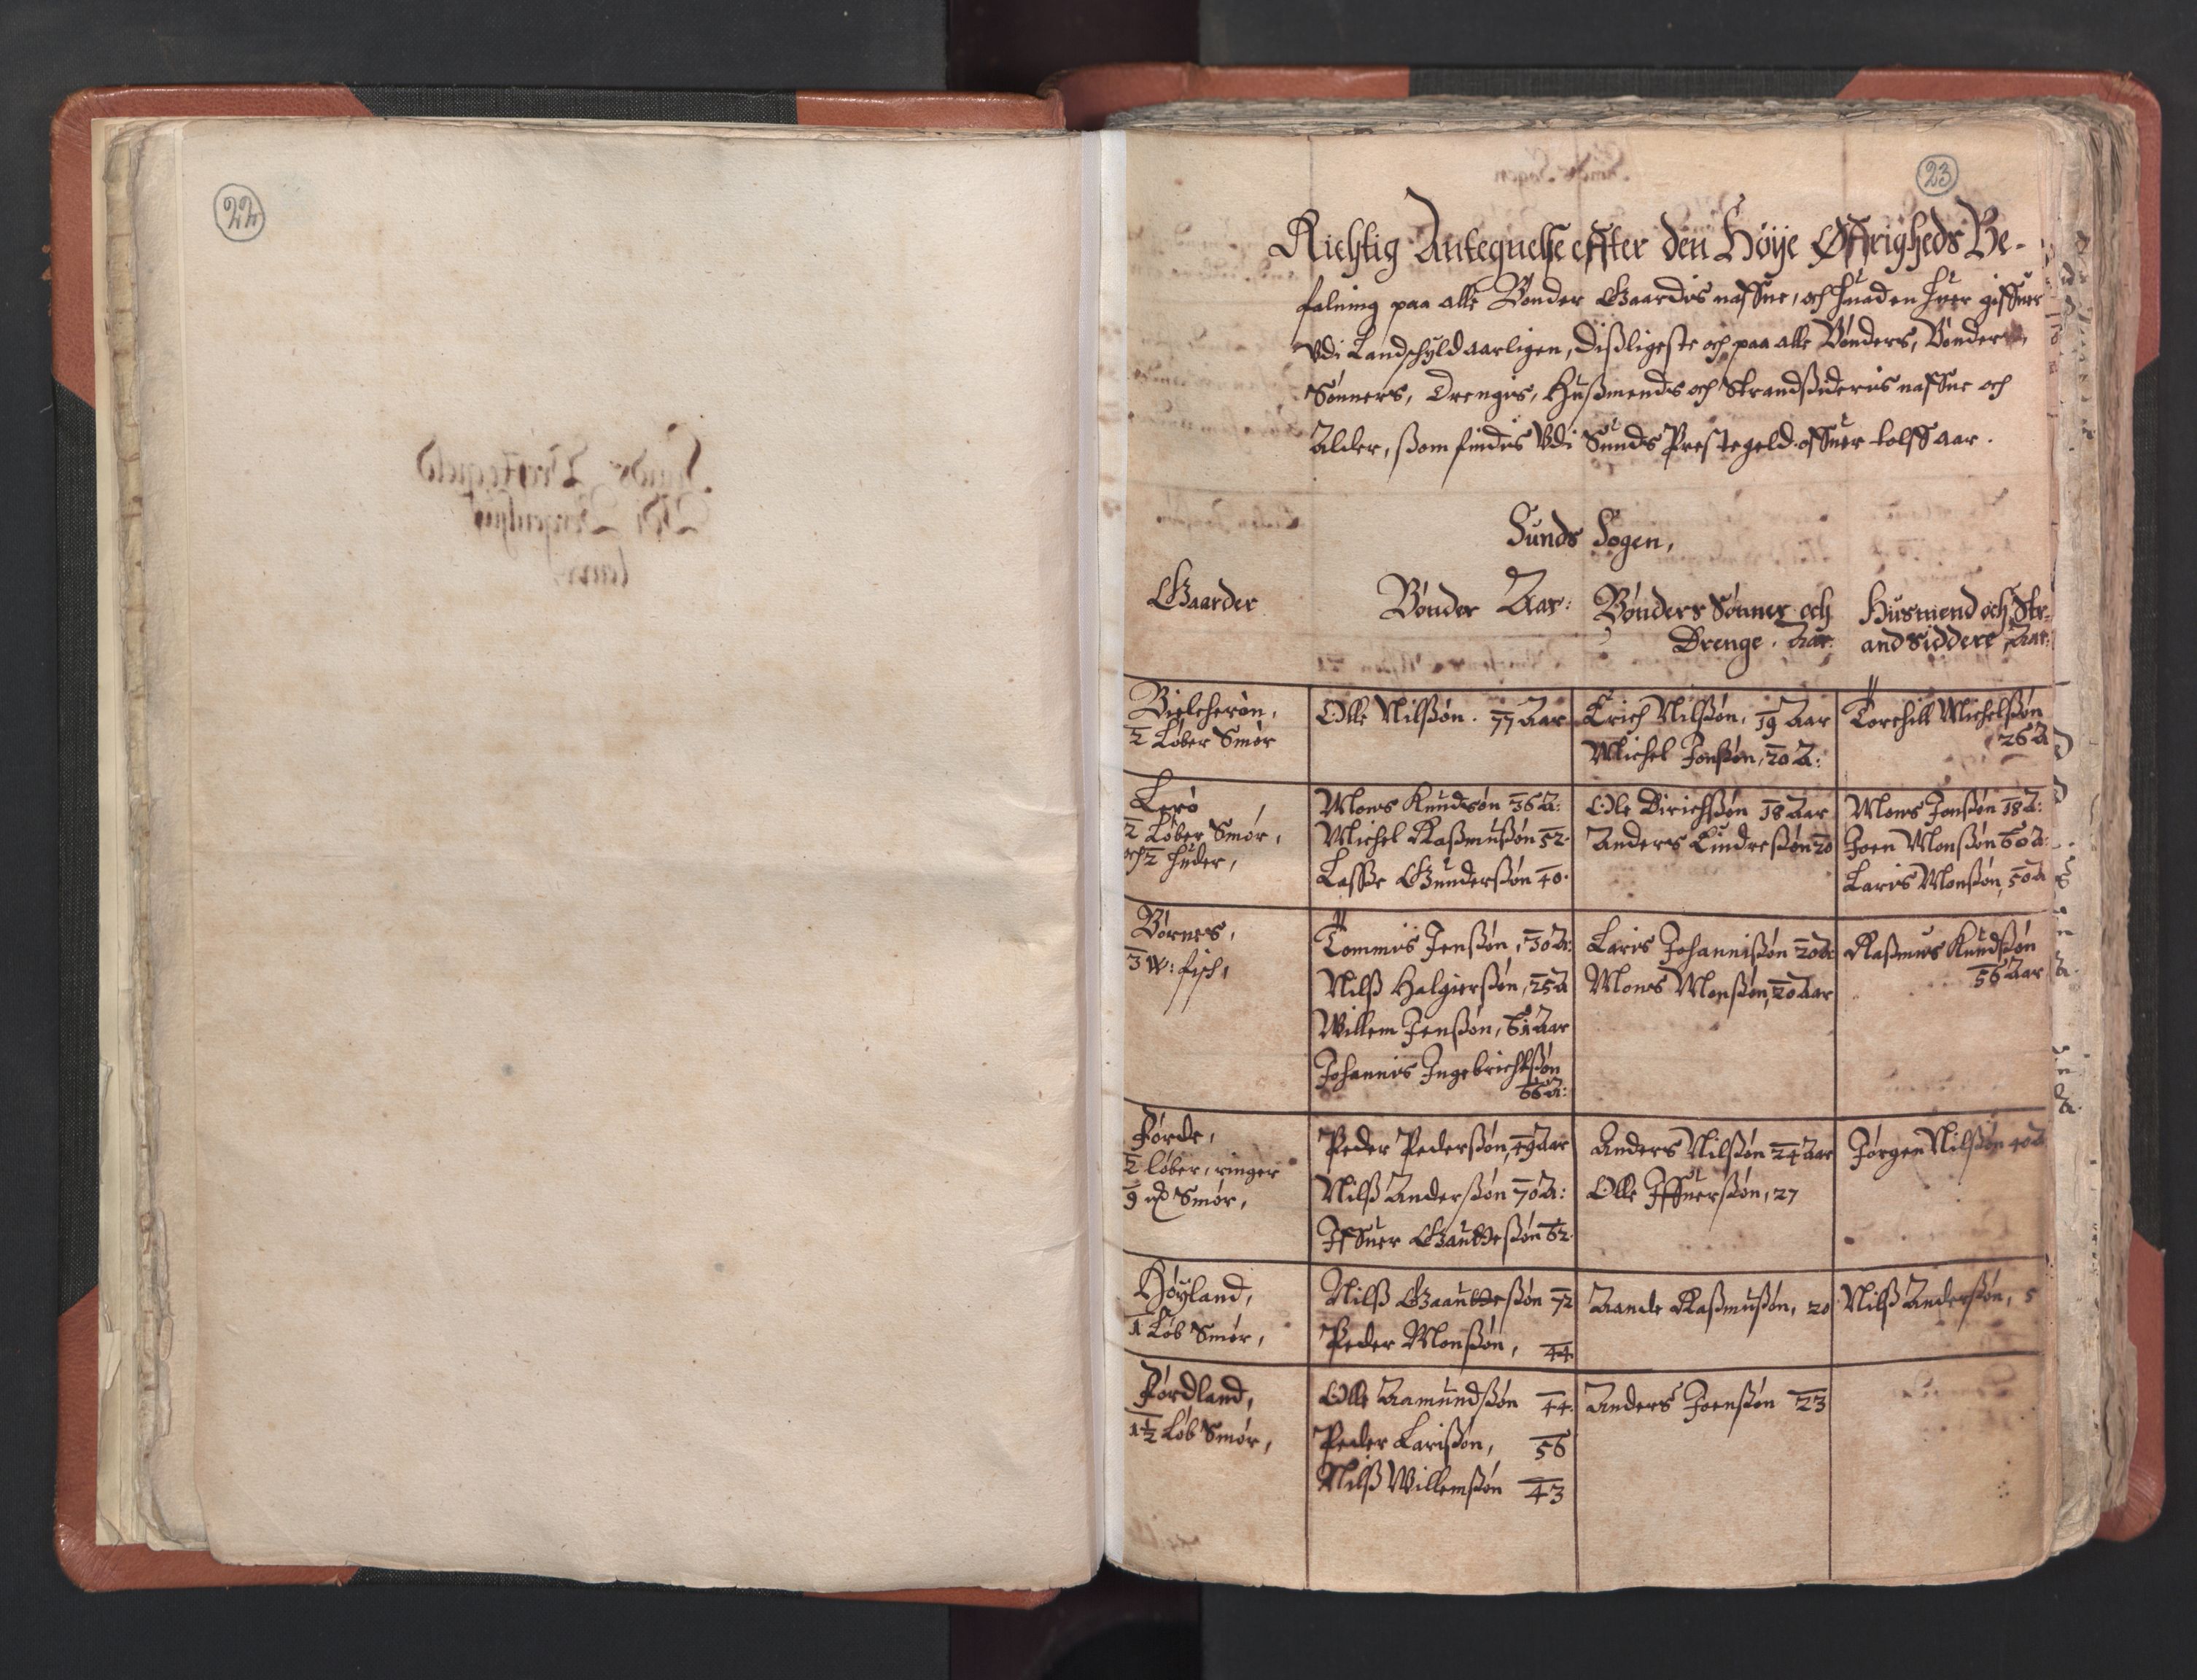 22
23
Richtig Antegnelse effter den Höÿe Øffrigheds Be-
falning paa alle Bønder Gaardes naffne, och huad en huer giffuer
Vdi Landschyld aarligen, Dißligeste och paa alle Bønders, Bønder
Sønners, Drenges, Hußmends och Strandßideris naffne och
Alder, ßom findis Vdi Sunds Prestegeld offuer tolff aar.
Sunds Sogen,
Gaarder
Bønder Aar:
Bønders Sønner och
Drenge. Aar:
Husmend och Str-
andsiddere, Aar:
Bielcherøn,
½ Løber Smør
Olle Nilßøn. 77 Aar
Erich Nilßøn, 19 Aar
Michel Jonßøn, 20 A:
Torchill Michelßøn
26 A
Lerø,
2 Løber Smør,
och 2 huder,
Mons Knudsøn 36 A:
Michel Raßmußøn 52.
Lasße Gunderßøn 40.
Ole Dirichßøn 18 Aar
Anders Lindreßøn 20
Mons Jonßøn 18 A:
Joen Monßøn 60 A:
Laris Monßøn, 50 A
Børnes,
3 W: fisch,
Tommis Jenßøn, 30 A:
Nilß Halgierßøn, 25 A
Willem Jenßøn, 61 Aar
Johannis Ingebrichtßøn
66 A:
Laris Johannißøn 20 A:
Mons Monßøn, 20 Aar
Raßmus Knudßøn
56 Aar
Førde,
2 løber, ringer
9 Smør,
Peder Pederßøn, 49 Aar
Nilß Anderßøn 70 A:
Iffuer Gautteßøn 62.
Anders Nilßøn 24 Aar
Olle Iffuerßøn, 27
Jørgen Nilßøn 40 A
Høyland,
1 Løb Smør,
Nilß Gaautteßøn 72
Peder Monßøn, 44
Aande Raßmußøn, 20
Nilß Anderßøn, 5
Førdland,
1½ Løb Smør,
Olle Aamundßøn 44.
Peder Larißøn, 56
Nilß Willemßøn 43
Anders Joenßøn 23